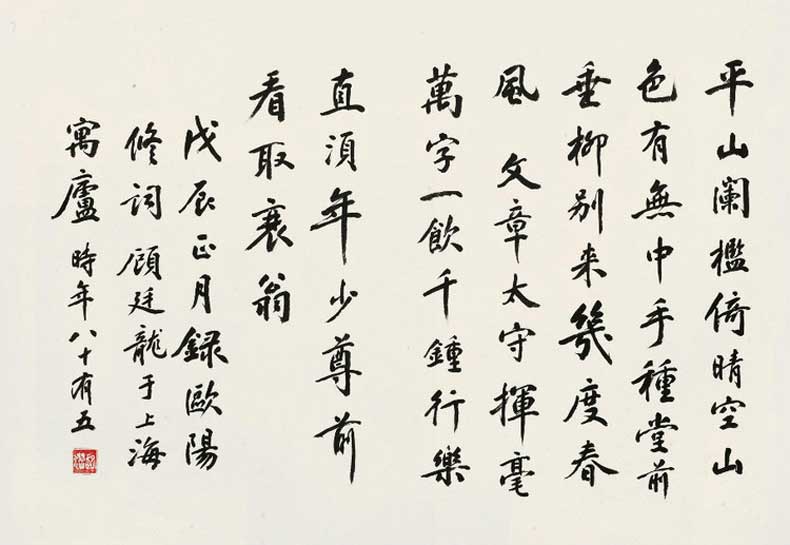 平山阑槛倚晴空山
色有無中手種堂前
垂柳别来幾度春
風 文章太守揮毫
萬字一飲千鍾行樂
直須年少尊前
看取衰翁
戊辰正月録歐陽
修词顧廷龍于上海
寓廬時年八十有五